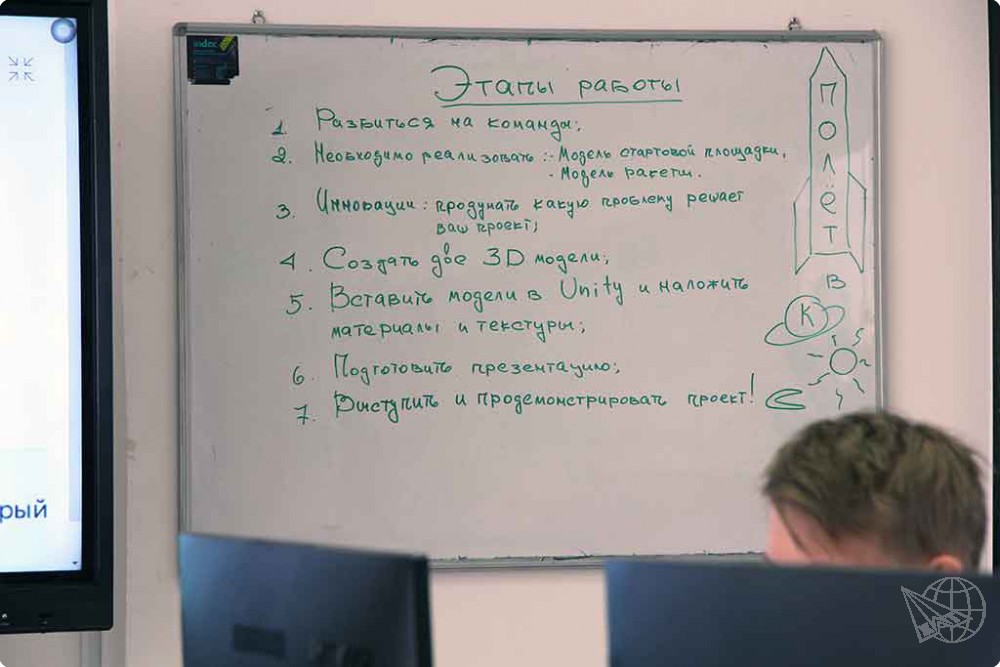 index
Этапы работы
1. Разбиться на команды;
2. Необходимо реализовать :- Модель стартовой площадки,
- Модель ракеты.
3. Инновации : продумать какую проблему решает
ваш проект;
4. Создать две 3D модели;
5. Вставить модели в Unity и наложить
материалы и текстуры;
6. Подготовить презентацию;
7. Выступить и продемонстрировать проект!
Полёт
в
К
рый